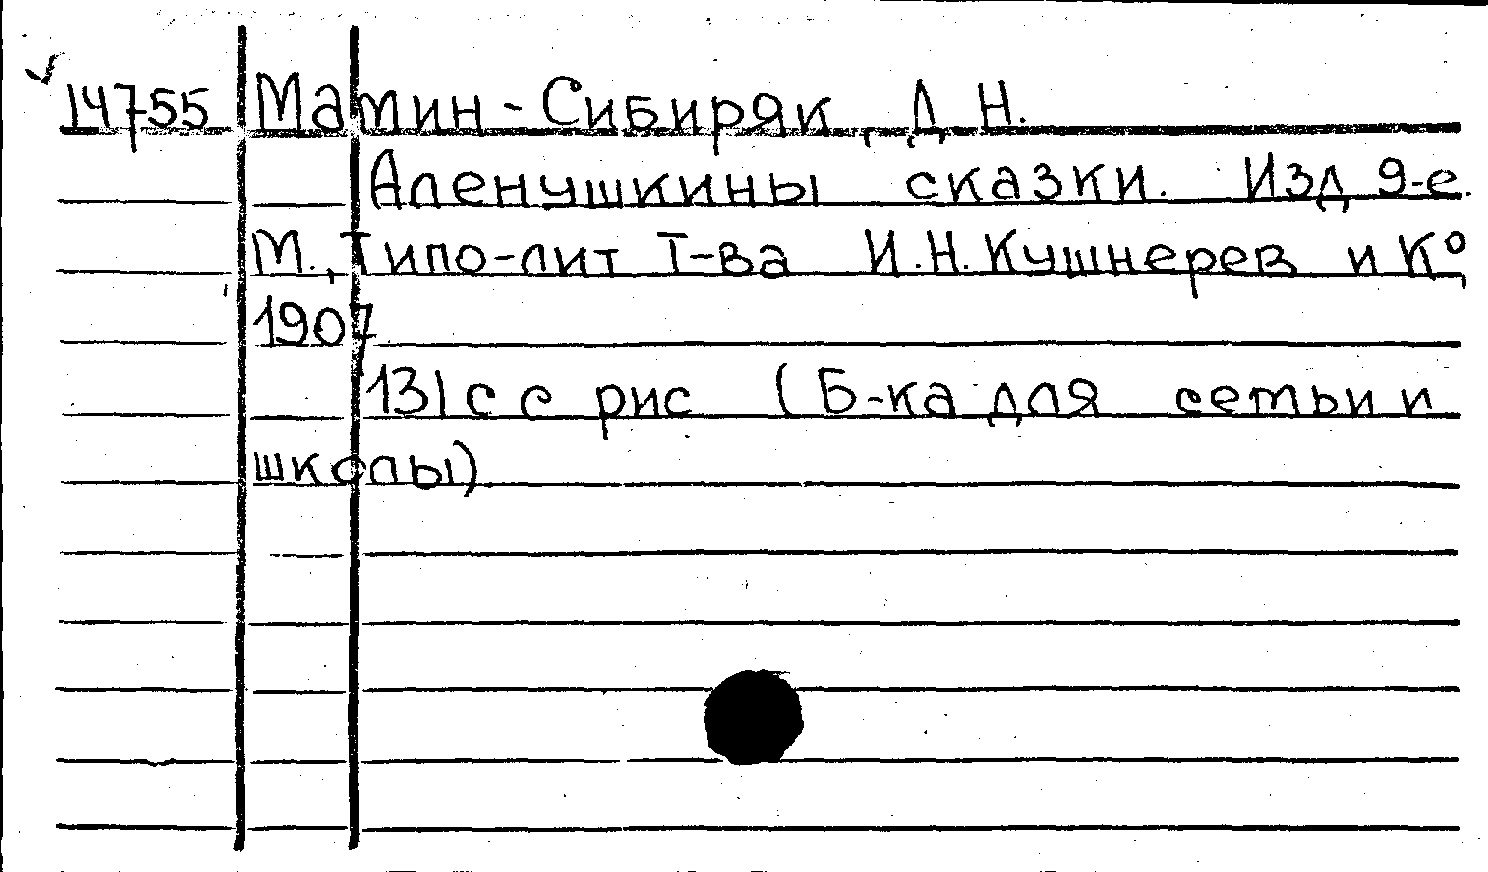 14755 Мамин-Сибиряк, Д. Н.
Аленушкины сказки. Изд 9-е.
М., Типо-лит Т-ва И.Н. Кушнерев и К°,
1907
131 с с рис (Б-ка для семьи и
школы)